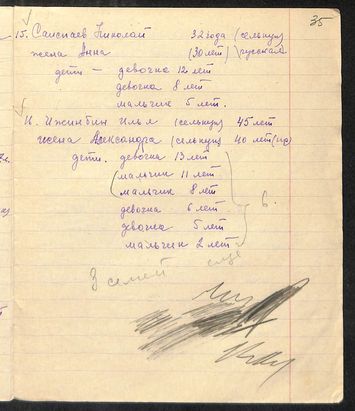 35
15. Саиспаев Николай 32 года (селькуп)
жена Анна (30 лет) \русская
дети — девочка 12 лет
девочка 8 лет
мальчик 5 лет.
16. Ижинбин Илья (селькуп) 45 лет
жена Александра (селькуп) 40 лет
дети. девочка 13 лет
мальчик 11 лет
мальчик 8 лет
девочка 6 лет в.
девочка 5 лет
мальчик 2 лет
3 семей еще